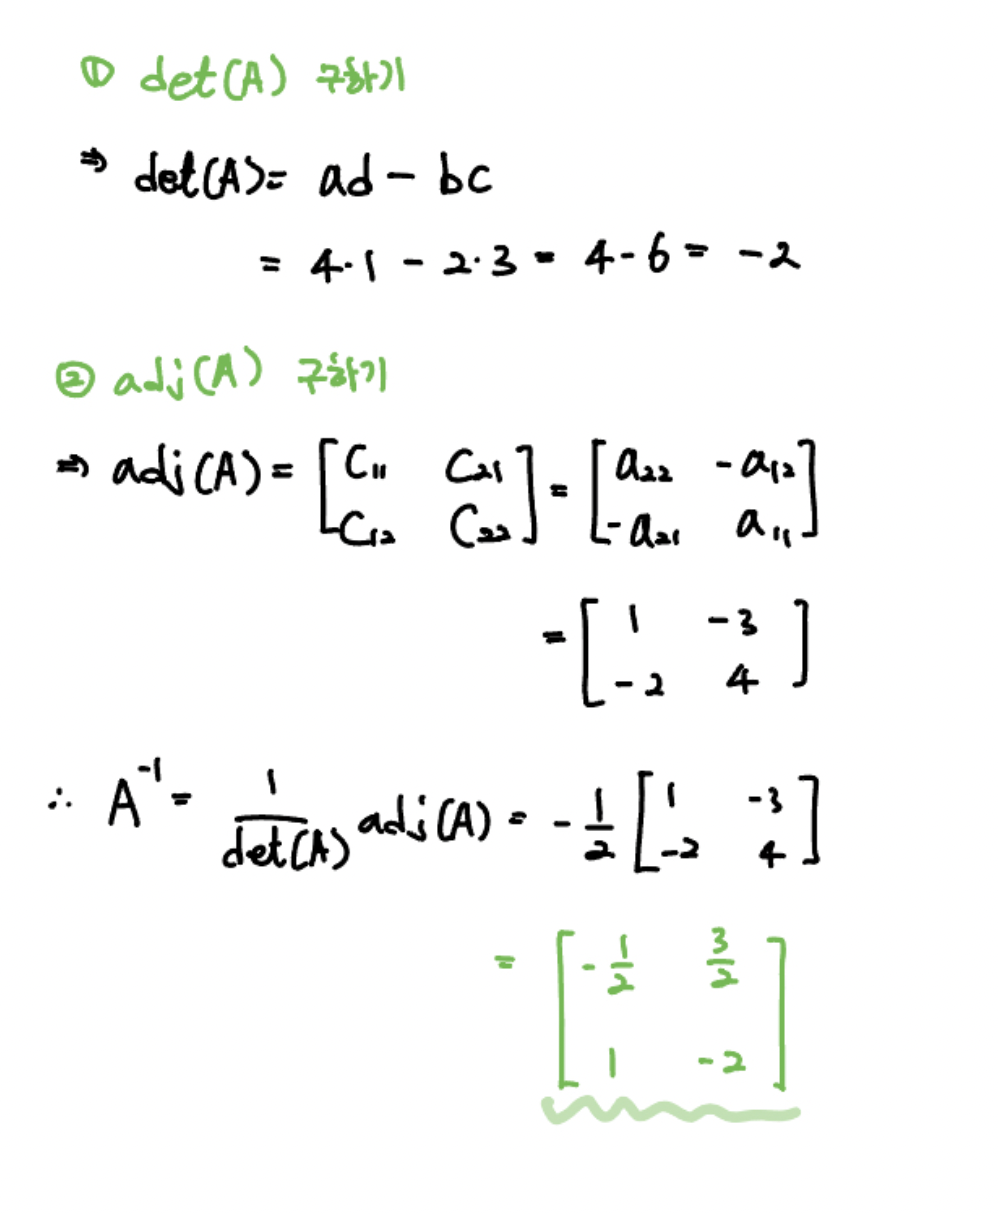 ① det(A) 구하기
⇒ det(A)= ad - bc
= 4·1 - 2·3 = 4-6 = -2
② adj(A) 구하기
⇒ adj(A) = [C₁₁ C₂₁] = [a₂₂ -a₁₂]
[C₁₂ C₂₂] [-a₂₁ a₁₁]
= [1 -3]
[-2 4]
∴ A⁻¹ = 1/det(A) adj(A) = -1/2 [1 -3]
[-2 4]
= [-1/2 3/2]
[1 -2]